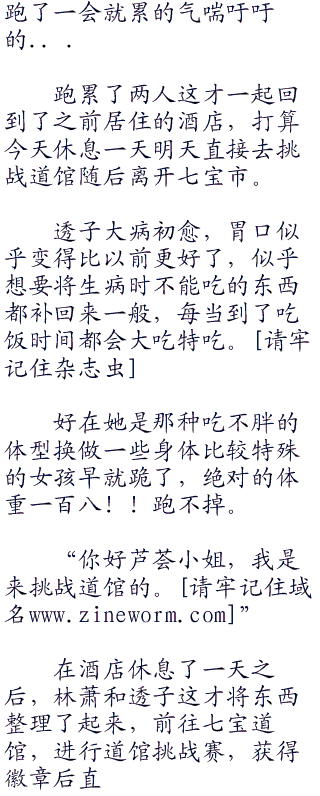 跑了一会就累的气喘吁吁
的. . .
跑累了两人这才一起回
到了之前居住的酒店，打算
今天休息一天明天直接去挑
战道馆随后离开七宝市。
透子大病初愈，胃口似
乎变得比以前更好了，似乎
想要将生病时不能吃的东西
都补回来一般，每当到了吃
饭时间都会大吃特吃。[请牢
记住杂志虫]
好在她是那种吃不胖的
体型换做一些身体比较特殊
的女孩早就跪了，绝对的体
重一百八！！跑不掉。
“你好芦荟小姐，我是
来挑战道馆的。[请牢记住域
名www.zineworm.com]”
在酒店休息了一天之
后，林萧和透子这才将东西
整理了起来，前往七宝道
馆，进行道馆挑战赛，获得
徽章后直